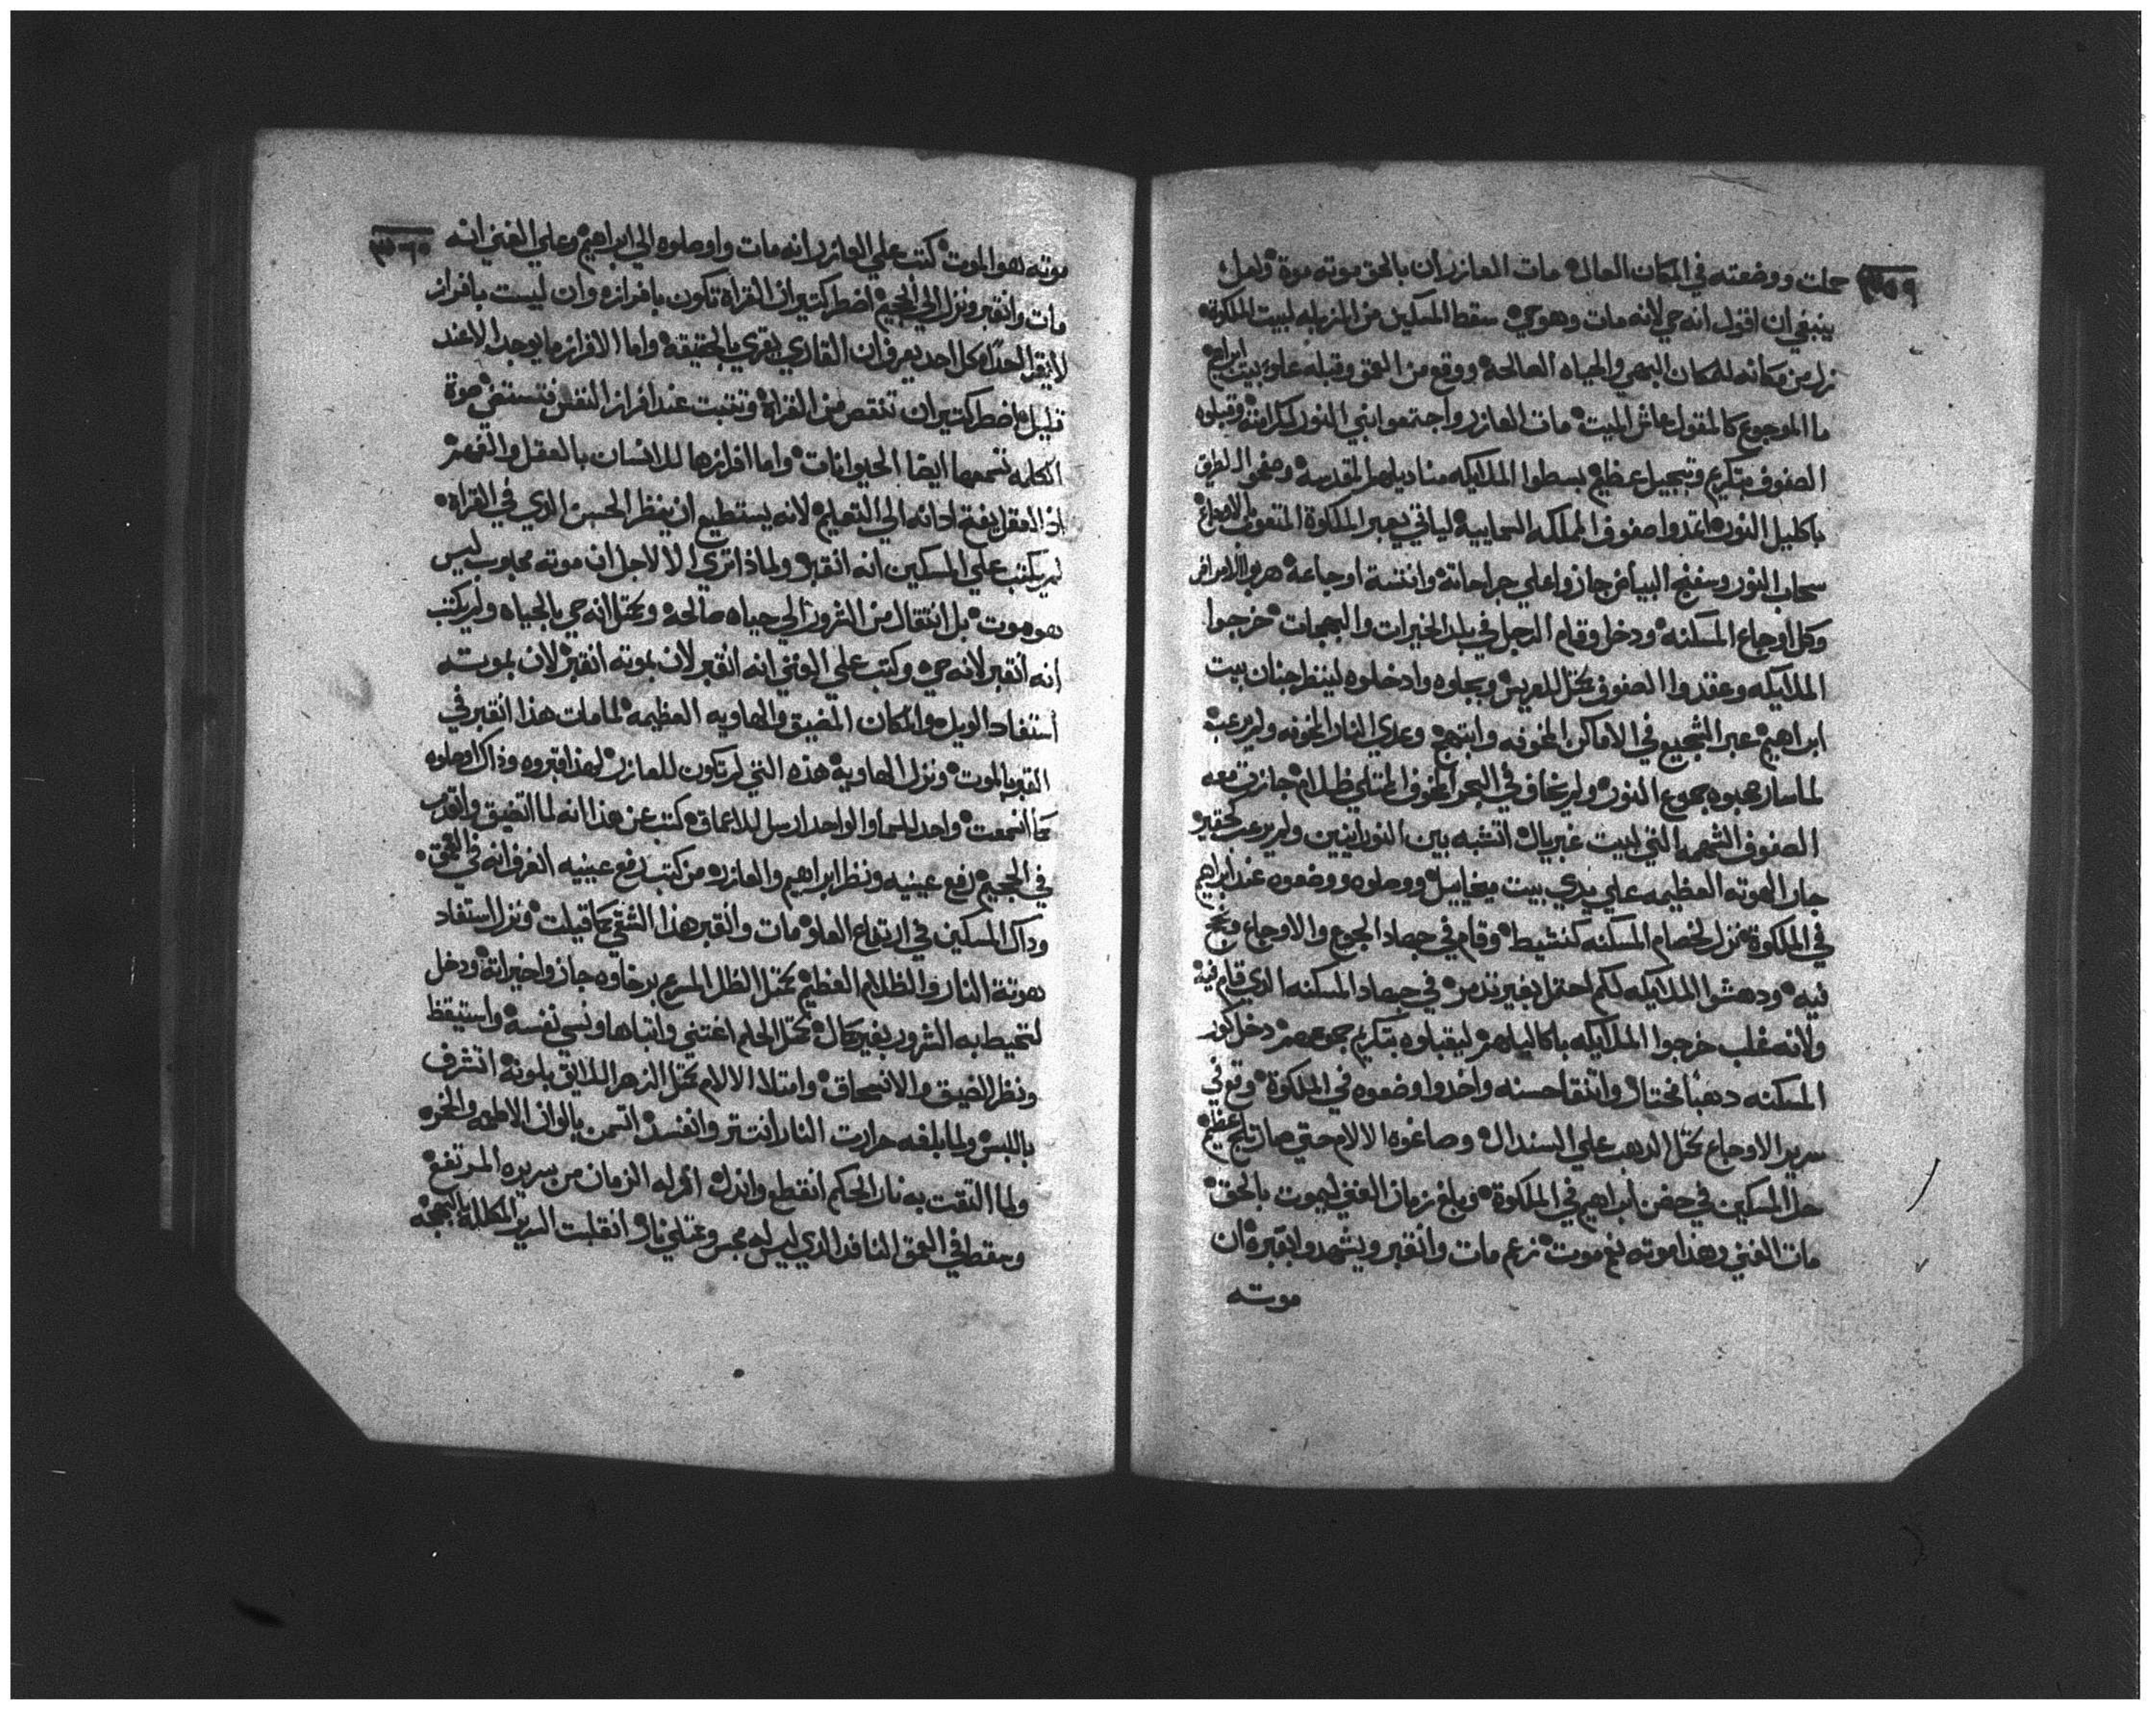 حملت ووضعته في المكان العال مات العازر ان بالحق موته موة ولعل
ينبغي ان اقول انه حي لانه مات وهو حي سقط المسكين من المزبله لبيت الملكوة
نزل من مكانه للمكان البهي والحياه الصالحة ووقع من العمق وقبله علو بيت ابراهيم
ما الموجوع كالمقول عاش الميت مات العازر واجتمعوا بني النور لكرامته وقبلوه
الصفوف بتكريم وتبجيل عظيم بسطوا الملايكه مناديلهم المقدسة وضفروا الطريق
باكليل النور امتدوا صفوف المملكه السمايية لياتي يعبر الملكوة المتعوب بالاوجاع
سحاب النور وسفنج البياض جازوا علي جراحاتة وانتسة اوجاعة هربوا الامراض
وكل اوجاع المسكنه ودخل وقام الرجل في بلد الخيرات والبهجات خرجوا
الملايكه وعقدوا الصفوف بمثل للعريس وبجلوه وادخلوه لينظر جنان بيت
ابراهيم عبر الشجيع في الاماكن المخوفه وابتهج وعدي النار المخوفه ولم يرعب
لما سار صحبوه جموع النور ولم يخاف في البحر المخوف الممتلي ظلام جازت معه
الصفوف الشهمه التي لبيت غبريال اتشبه بين النورانيين ولم يرعب كحقير
جاز الهوته العظيمه علي يدي بيت ميخاييل ووصلوه ووضعوه عند ابراهيم
في الملكوة نزل لخصام المسكنه كنشيط وقام في جهاد الجوع والاوجاع ونجح
فيه ودهشوا الملايكه لكم احتمل بغير تذمر في جهاد المسكنه الذي قام فيه
ولانه غلب خرجوا الملايكه باكاليلهم ليقبلوه بتكريم جموعهم دخل كور
المسكنه دهبا مختار واتنقا حسنه واخدوا وضعوه في الملكوة وقع في
سرير الاوجاع بمثل الدهب علي السندال وصاغوه الالام حتي صار تاج عظيم
حل المسكين في حضن ابراهيم في الملكوة وبلغ زمان الغني ليموت بالحق
مات الغني وهذا موته نع موت زعم مات وانقبر ويشهدوا بقبره ان
موته
موته هو الموت كتب علي العازر انه مات واوصلوه الي ابراهيم وعلي الغني انه
مات وانقبر ونزل الي الجحيم اضطر كتير ان القراة تكون بافرازه وان ليست بافراز
لا يقرا احدا كل احد يعرف ان القاري يقري بالحقيقة واما الافراز ما يوجد الا عند
قليل اضطر كتير ان تنقص من القراة وتثبت عند افراز النفس فتستضي صوة
الكلمه تسمعها ايضا الحيوانات واما افرازها للانسان بالعقل والفهم
اذ العقل يفتح اذانه الي التعليم لانه يستطيع ان ينظر الحسن الذي في القراة
لم يكتب علي المسكين انه انقبر ولماذا تري الا لاجل ان موته محبوب ليس
هو موت بل انتقال من الشرور الي حياه صالحه وبمثل انه حي بالحياه ولم يكتب
انه انقبر لانه حي وكتب علي الغني انه انقبر لان بموته انقبر لان بموته
استفاد الويل والمكان المضيق والهاويه العظيمه لما مات هذا انقبر في
القبر بالموت ونزل الهاوية هذه التي لم تكون للعازر لهذا قبروه وذاك اوصلوه
كما سمعت واحد للسما والواحد ارسل للاعماق كتب عن هذا انه لما اتضيق واتعدب
في الجحيم رفع عينيه ونظر ابراهيم والعازر من كتب رفع عينيه انعرف انه في العمق
وداك المسكين في ارتفاع العلو مات وانقبر هذا الشقي كما قيلت ونزل استفاد
هوتة النار والظلام العظيم بمثل الظل المسرع برخاوه جازوا خيراته ودخل
لتحيط به الشرور بغير كال بمثل الحلم اغتني واتباها ونسي نفسه واستيقظ
ونظر الضيق والانسحاق وامتلا الالام بمثل الزهر اللايق بلونه اتشرف
باللبس ولما بلغه حرارت النار انتتر وانفسد اتسمن بالوان الاطعمه والخمر
ولما التقت به نار الحكم انقطع واندل انزله الزمان من سريره المرتفع
وسقط في العمق النافد الذي ليس له مجس وممتلي نار انقلبت الدير المكلله بالبهجه